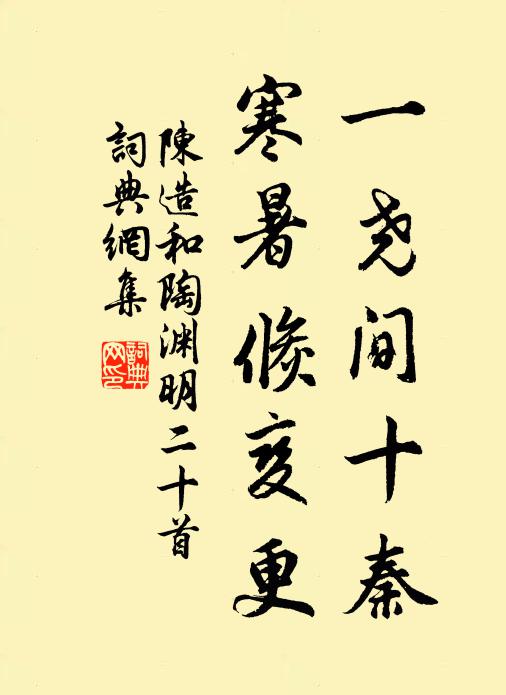 一尧间十秦
寒暑倏变更
陳造和陶渊明二十首
詞典網集
詞典网印